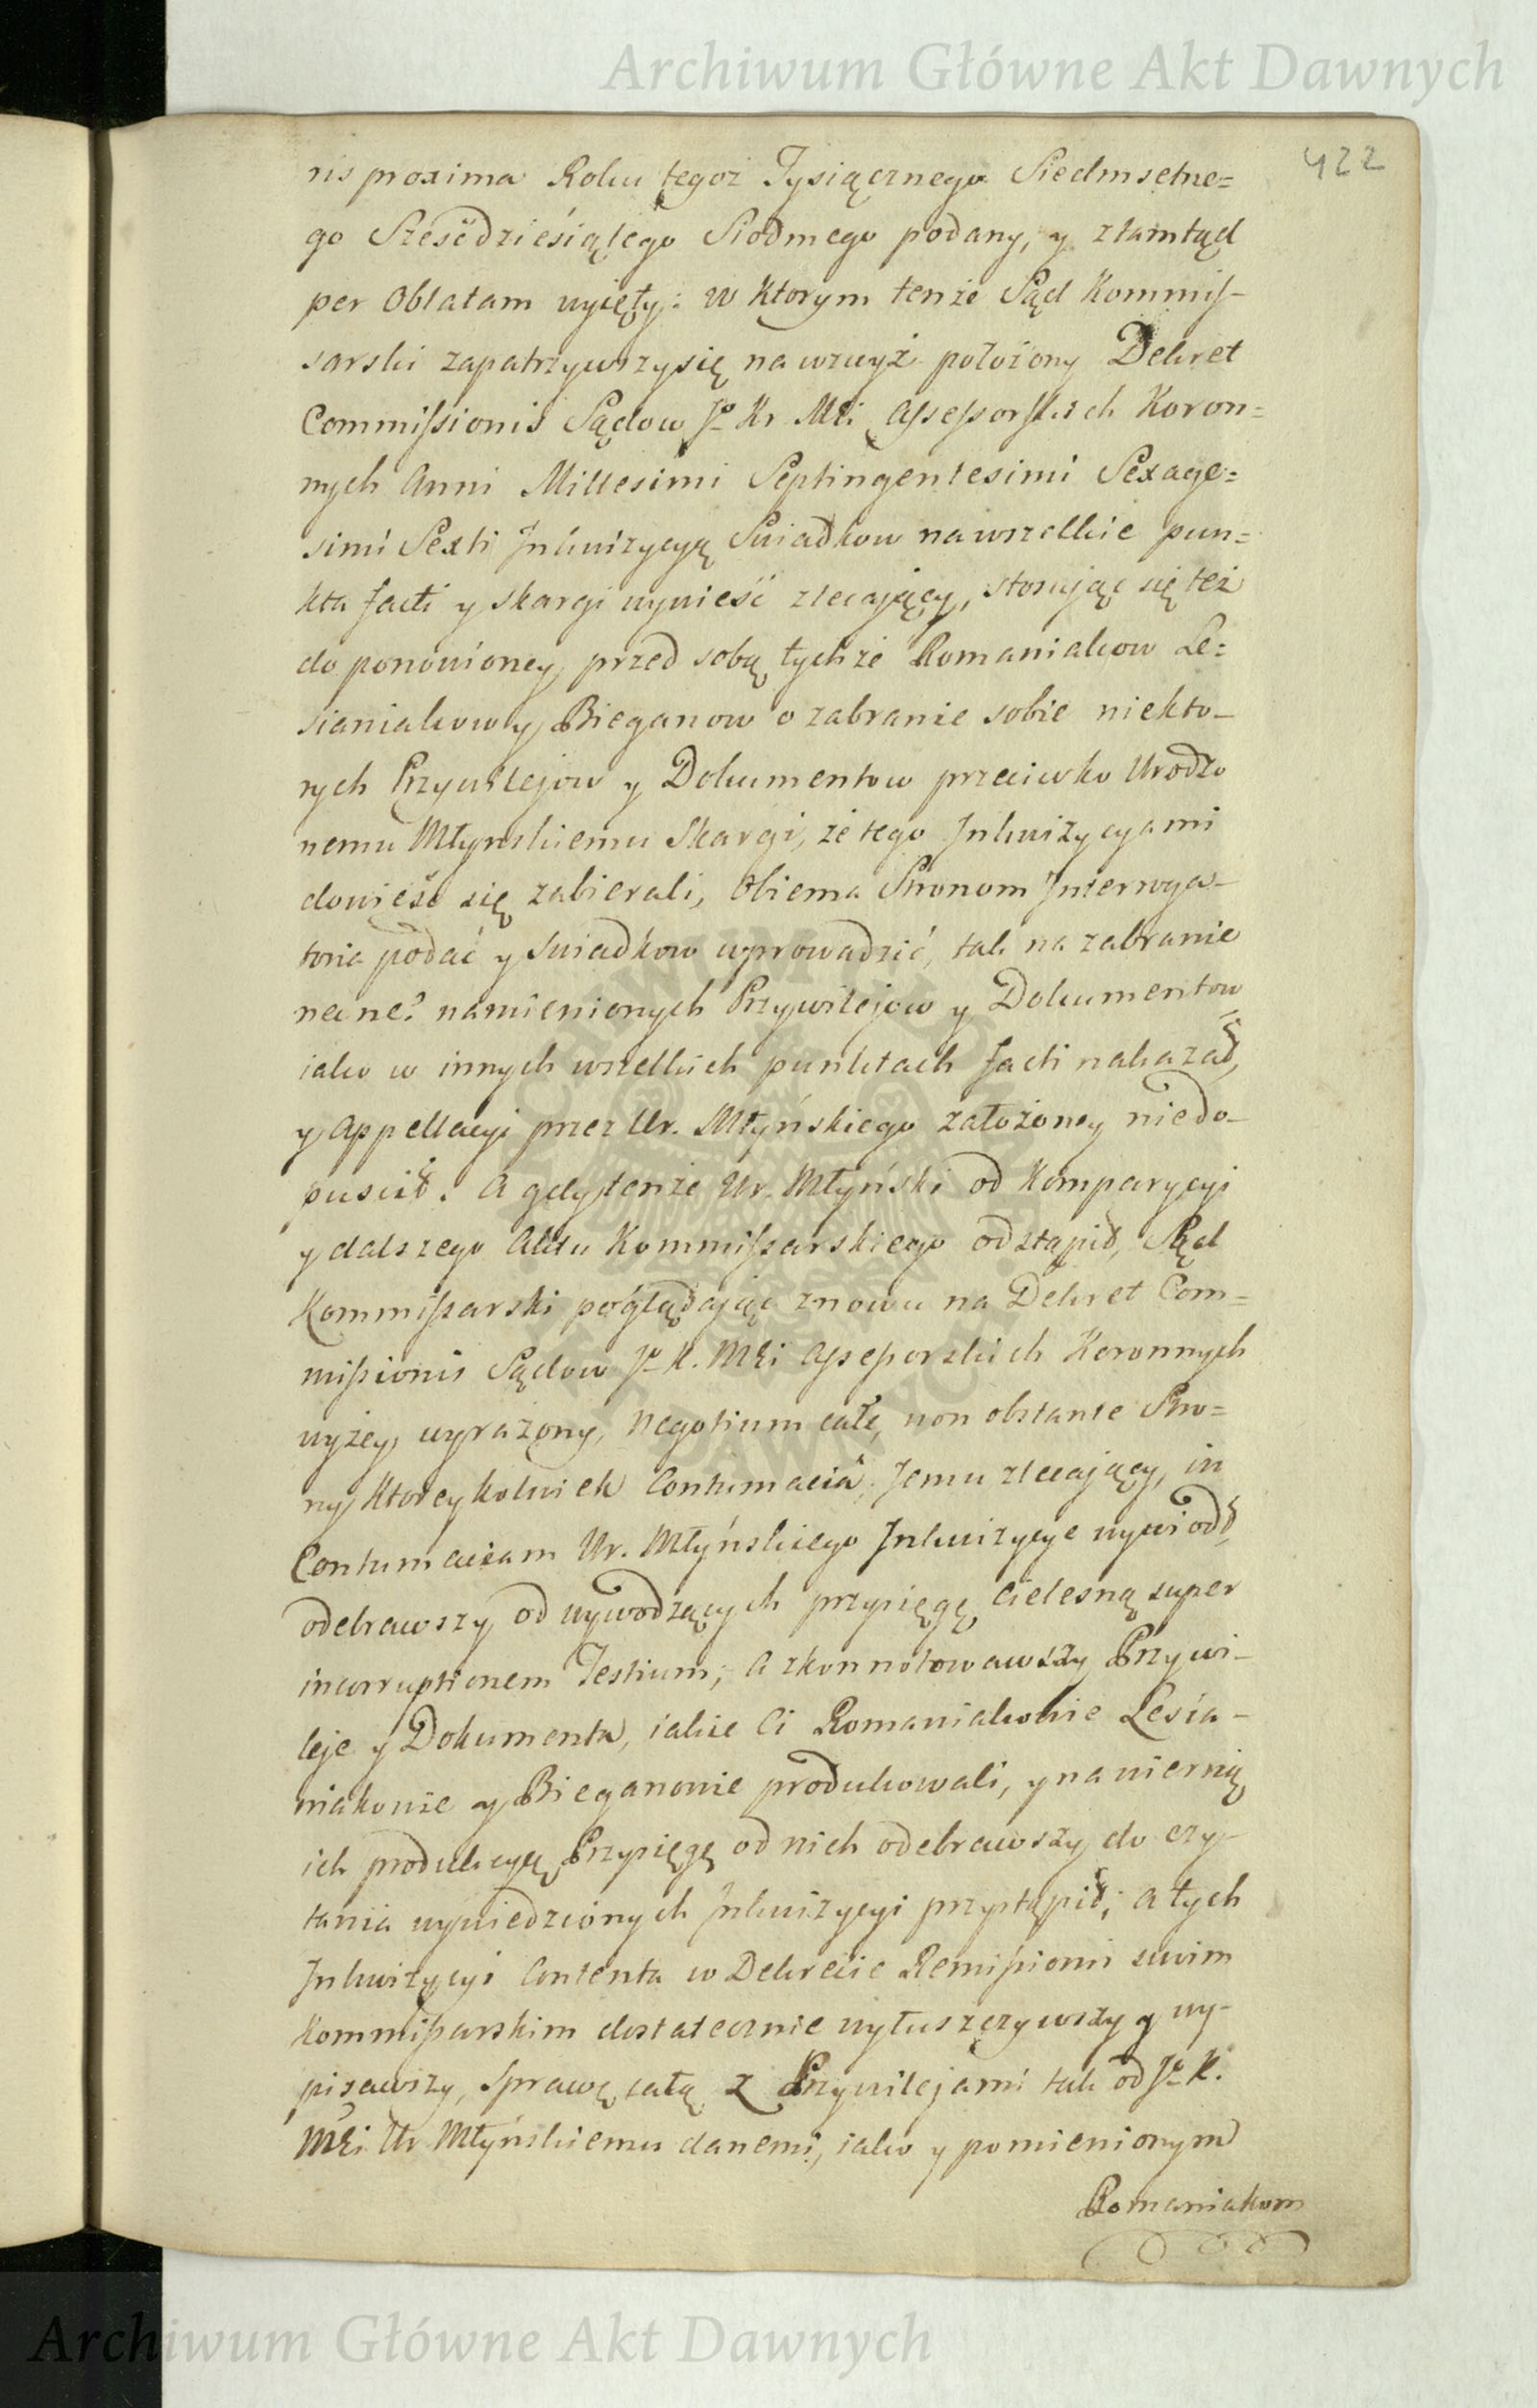 Archiwum Główne Akt Dawnych
422
ris proxima Roku tegoż Tysiącznego Siedmsetne=
go Sześćdzieśiątego Siodmego podany, y ztamtąd
per Oblatam wyięty: w ktorym tenże Sąd Kommis-
sarski zapatrzywszy się na wzwyż położony Dekret
Commissionis Sądow Jo Kr Mci Assessorskich Koron=
nych Anni Millesimi Septingentesimi Sexage=
simi Sexti Inkwizycyą Swiadkow na wszelkie pun=
kta facti y skargi wywieść zlecaiący, stosuiąc się też
do ponowioney przed sobą tychże Romaniakow Le=
sianiakow y Bieganow o zabranie sobie niekto-
rych Przywilejow y Dokumentow przeciwko Urodzo
nemu Młyńskiemu Skargi, że tego Inkwizycyami
dowieść się zabierali, Obiema Stronom Interroga-
toria podać y Swiadkow wprowadzić, tak na zabranie
nec ne? namienionych Przywilejow y Dokumentow
iako w innych wszelkich punktach facti nakazał,
y Appellacyi przez Ur. Młyńskiego założoney niedo-
puscił. A gdy tenże Ur. Młyński od Komparycyi
y dalszego Aktu Kommissarskiego odstąpił, Sąd
Kommissarski poglądaiąc znowu na Dekret Com=
missionis Sądow Jo K. Mci Assessorskich Koronnych
wyżey wyrażony, Negotium całe, non obstante Stro=
ny ktoreykolwiek Contumaciâ, Jemu zlecaiący, in
Contumaciam Ur. Młyńskiego Inkwizycye wywiodł,
odebrawszy od wywodzących przysięgę cielesną super
incorruptionem Testium; A zkonnotowawszy Przywi-
leje y Dokumenta, iakie Ci Romaniakowie Lesia-
niakowie y Bieganowie produkowali, y na wierną
ich produkcyą Przysięgę od nich odebrawszy do czy-
tania wywiedzionych Inkwizycyi przystąpił; A tych
Inkwizycyi Contenta w Dekrecie Remissionis swim
Kommissarskim dostatecznie wyłuszczywszy y wy-
pisawszy, Sprawę całą z Przywilejami tak od Jo K.
Mci Ur Młyńskiemu danemi, iako y pomienionym
Romaniakom
Archiwum Główne Akt Dawnych